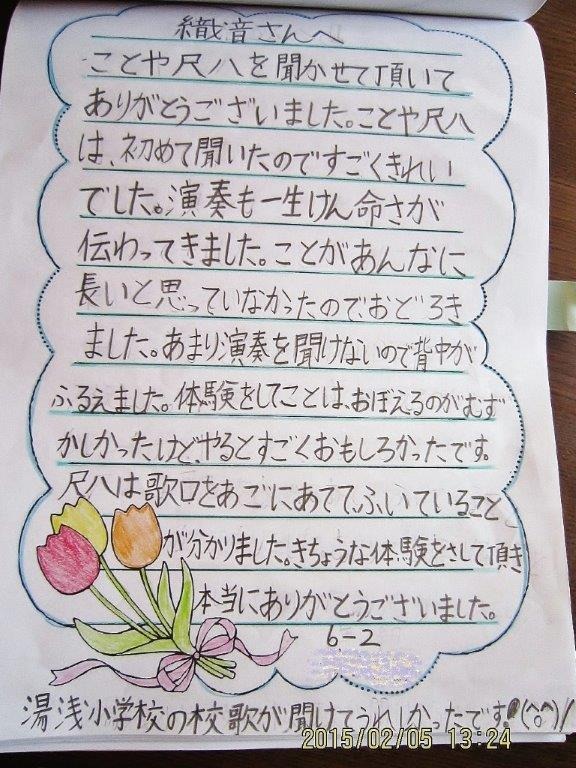 織音さんへ
ことや尺八を聞かせて頂いて
ありがとうございました。ことや尺八
は、初めて聞いたのですごくきれい
でした。演奏も一生けん命さが
伝わってきました。ことがあんなに
長いと思っていなかったので、おどろき
ました。あまり演奏を聞けないので背中が
ふるえました。体験をしてことは、おぼえるのがむず
かしかったけど、やるとすごくおもしろかったです。
尺八は歌口をあごにあてて、ふいていること
が分かりました。きちょうな体験をさして頂き
本当にありがとうございました。
6-2
湯浅小学校の校歌が聞けてうれしかったです!(^o^)/
2015/02/05 13:24